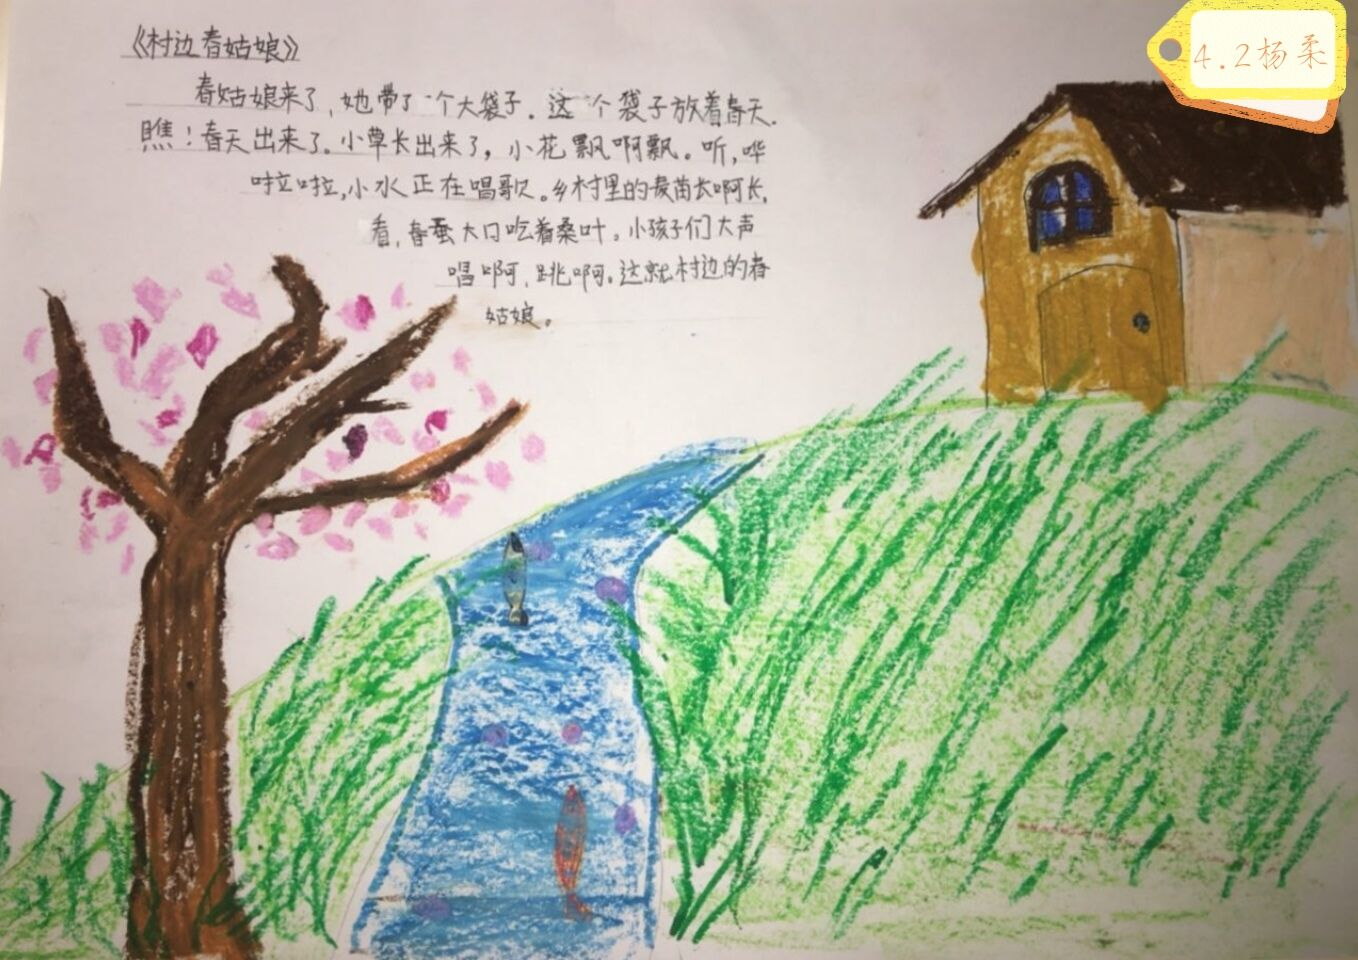 《村边春姑娘》
春姑娘来了,她带了一个大袋子.这一个袋子放着春天.
瞧!春天出来了。小草长出来了,小花飘啊飘。听,哗
啦啦,小水正在唱歌。乡村里的麦苗长啊长,
看,春蚕大口吃着桑叶。小孩子们大声
唱啊,跳啊。这就村边的春
姑娘。
4.2杨柔